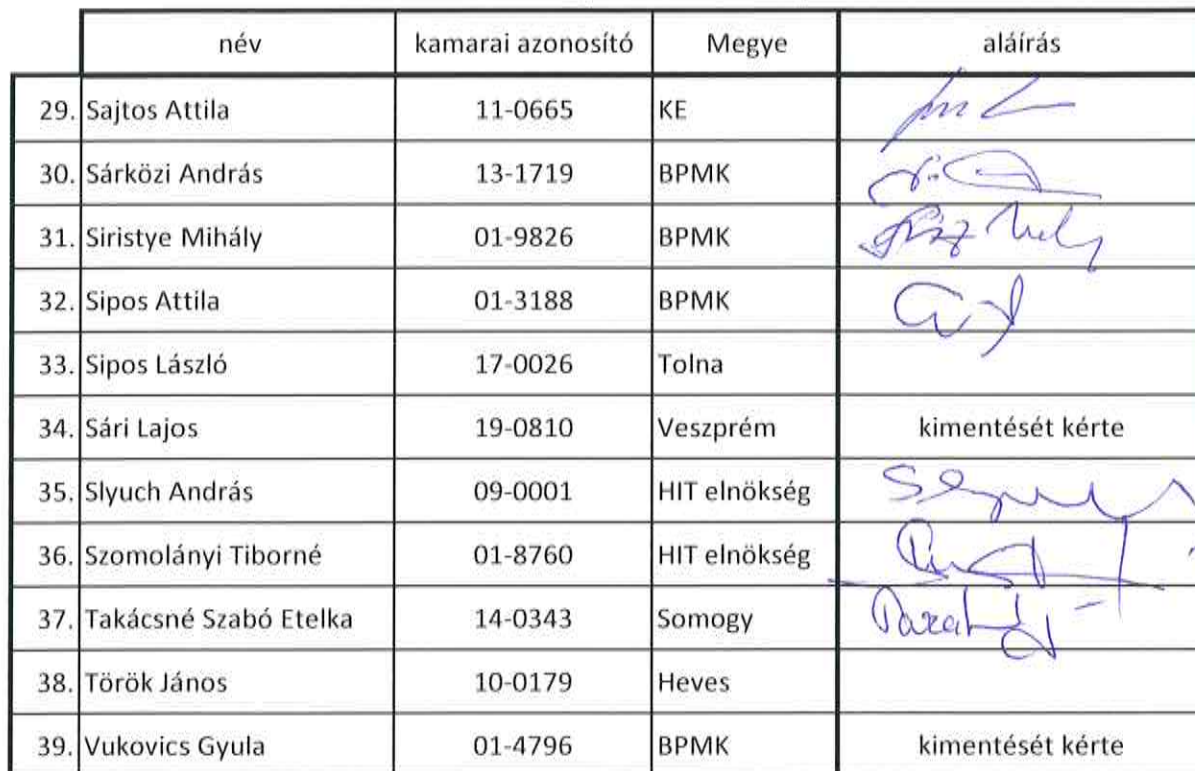 név kamarai azonosító Megye aláírás
29. Sajtos Attila 11-0665 KE
30. Sárközi András 13-1719 BPMK
31. Siristye Mihály 01-9826 BPMK
32. Sipos Attila 01-3188 BPMK
33. Sipos László 17-0026 Tolna
34. Sári Lajos 19-0810 Veszprém kimentését kérte
35. Slyuch András 09-0001 HIT elnökség
36. Szomolányi Tiborné 01-8760 HIT elnökség
37. Takácsné Szabó Etelka 14-0343 Somogy
38. Török János 10-0179 Heves
39. Vukovics Gyula 01-4796 BPMK kimentését kérte